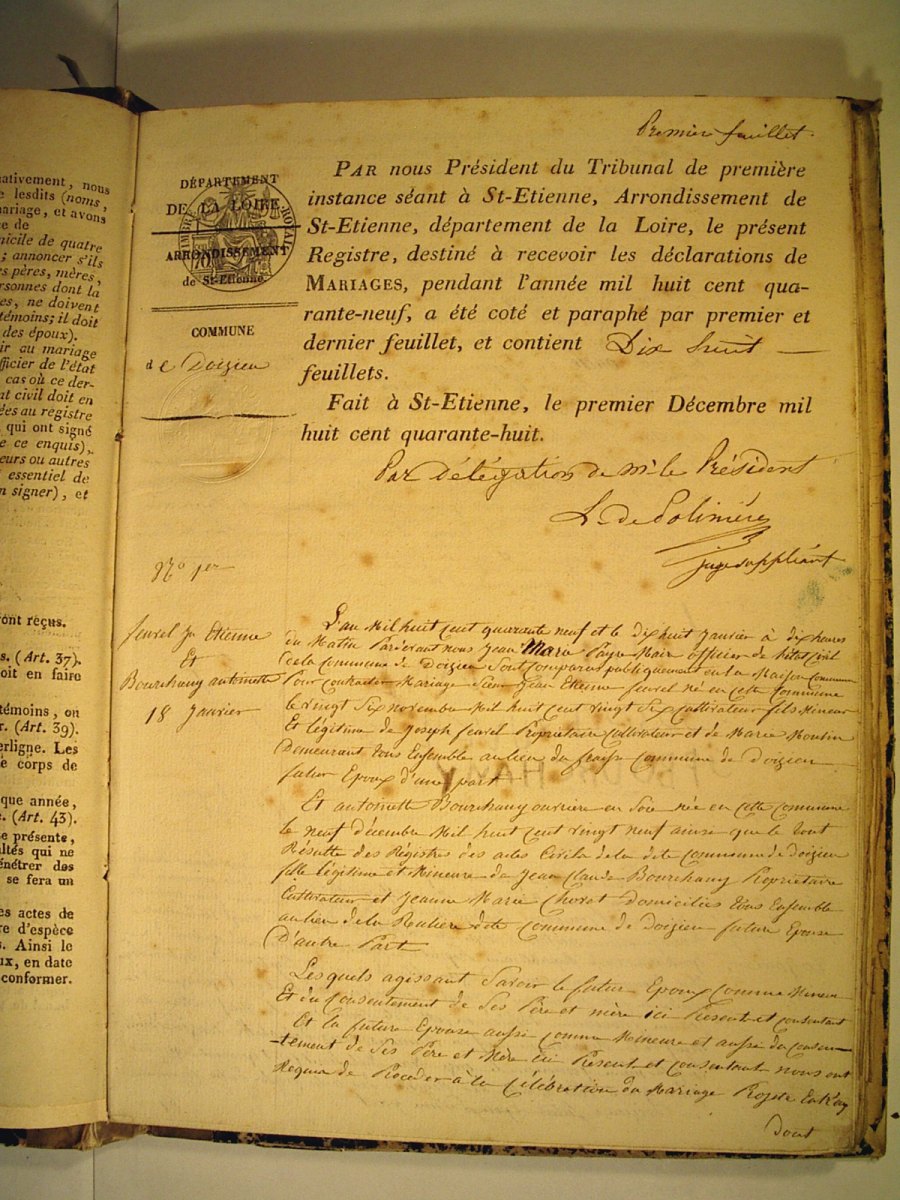 ativement, nous
lesdits (noms,
ariage, et avons
e de
nicile de quatre
; annoncer s'ils
s pères, mères,
rsonnes dont la
es, ne doivent
témoins; il doit
des époux).
ir au mariage
fficier de l'état
cas où ce der-
at civil doit en
ées au registre
qui ont signé
e ce enquis),
eurs ou autres
essentiel de
n signer), et
ont reçus.
s. (Art. 37).
oit en faire
témoins, on
r. (Art. 39).
erligne. Les
e corps de
que année,
s. (Art. 43).
e présente,
ltés qui ne
énétrer des
se fera un
es actes de
re d'espèce
s. Ainsi le
ux, en date
conformer.
Premier feuillet.
DÉPARTEMENT
DE LA LOIRE
ARRONDISSEMENT
de St-Etienne.
TIMBRE ROYAL
70
COMMUNE
de Doizieu
PAR nous Président du Tribunal de première
instance séant à St-Etienne, Arrondissement de
St-Etienne, département de la Loire, le présent
Registre, destiné à recevoir les déclarations de
MARIAGES, pendant l'année mil huit cent qua-
rante-neuf, a été coté et paraphé par premier et
dernier feuillet, et contient Dix huit
feuillets.
Fait à St-Etienne, le premier Décembre mil
huit cent quarante-huit.
Par Délégation de Mr le Président
L. de Polinière
juge suppléant
No 1er
feurel Jn Etienne
Et
Bourchany antoinette
18 Janvier
L'an Mil huit cent quarante neuf et le dix huit Janvier à dix heures
du Matin Pardevant nous Jean Marie Payre Maire officier de l'état Civil
de la Commune de Doizieu Sont Comparus publiquement en la Maison Commune
Pour Contracter Mariage Sieur Jean Etienne feurel né en cette Commune
le vingt Six novembre Mil huit Cent vingt Six Cultivateur fils Mineur
Et légitime de Joseph feurel Propriétaire Cultivateur et de Marie Moulin
Demeurant tous Ensemble au lieu du Commune de Doizieu
futur Epoux d'une part
Et antoinette Bourchany ouvrière en Soie née en cette Commune
le neuf décembre Mil huit Cent vingt neuf ainsi que le tout
Résulte des Régistres des actes Civils de la dite Commune de Doizieu
fille légitime et Mineure de Jean Claude Bourchany Propriétaire
Cultivateur et Jeanne Marie Choret Domiciliés tous Ensemble
au lieu de la dite Commune de Doizieu future Epouse
D'autre Part
Lesquels agissant Savoir le futur Epoux Comme Mineur
Et du Consentement de Ses Père et mère ici Présent et consentant
Et la future Epouse aussi Comme Mineure et aussi du Consen-
-tement de Ses Père et Mère ici Présent et Consentant nous ont
Requis de Proceder à la Célébration du Mariage Projeté Entr'eux
dont